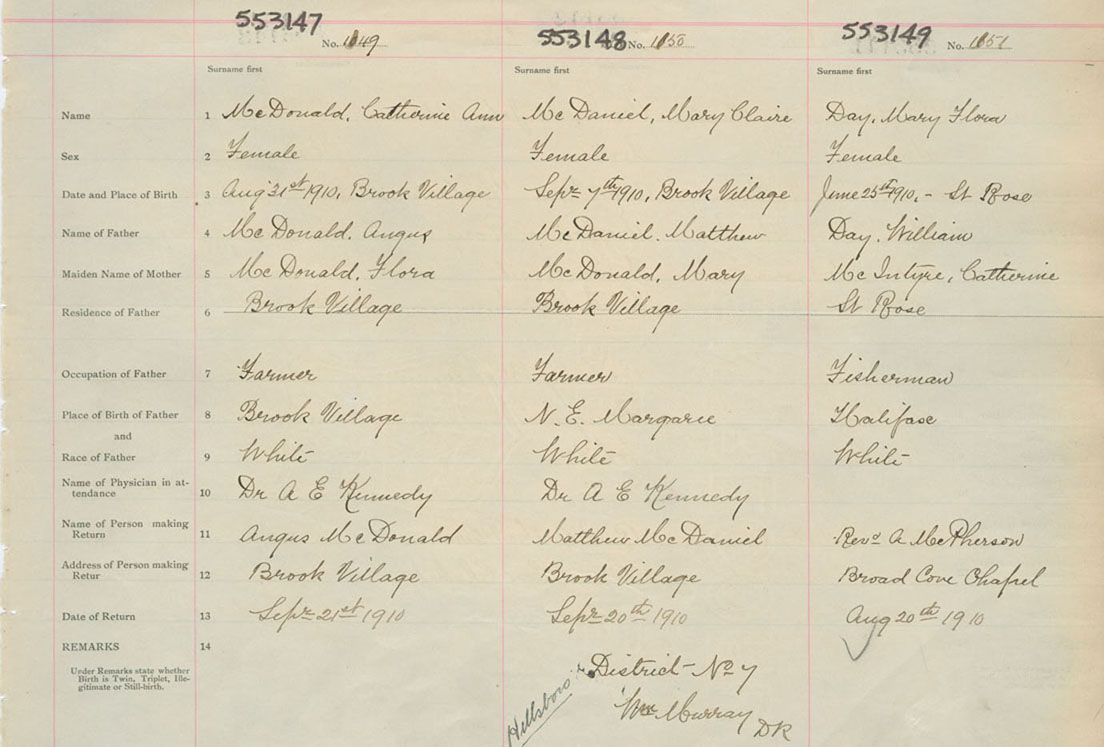 553147 No. 1049 553148 No. 1050 553149 No. 1051
Surname first Surname first Surname first
Name 1 McDonald, Catherine Ann McDaniel, Mary Claire Day, Mary Flora
Sex 2 Female Female Female
Date and Place of Birth 3 Aug 31st 1910, Brook Village Sepr 7th 1910, Brook Village June 25th 1910, - St Rose
Name of Father 4 McDonald, Angus McDaniel, Matthew Day, William
Maiden Name of Mother 5 McDonald, Flora McDonald, Mary McIntyre, Catherine
Residence of Father 6 Brook Village Brook Village St Rose
Occupation of Father 7 Farmer Farmer Fisherman
Place of Birth of Father 8 Brook Village N. E. Margaree Halifax
and
Race of Father 9 White White White
Name of Physician in at-
tendance 10 Dr A E Kennedy Dr A E Kennedy
Name of Person making
Return 11 Angus McDonald Matthew McDaniel Revd A McPherson
Address of Person making
Retur 12 Brook Village Brook Village Broad Cove Chapel
Date of Return 13 Sepr 21st 1910 Sepr 20th 1910 Aug 20th 1910
REMARKS 14
Under Remarks state whether
Birth is Twin, Triplet, Ille-
gitimate or Still-birth.
District No 7
Hillsboro
Wm Murray DR